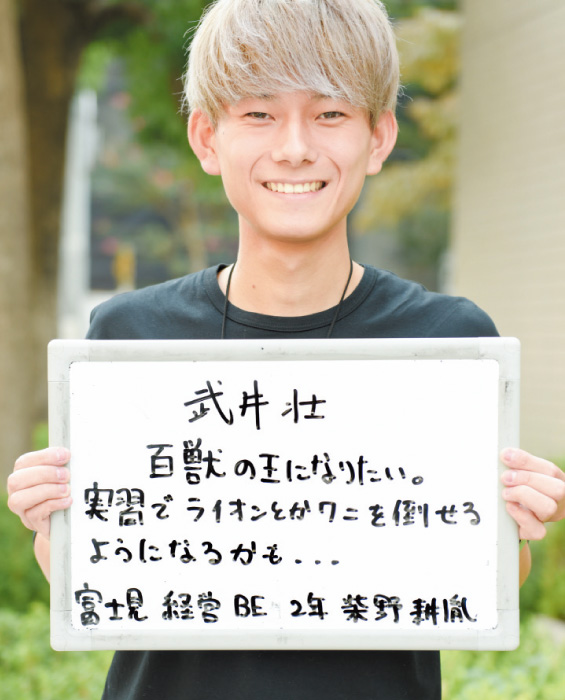 武井壮
百獣の王になりたい。
実習でライオンとかワニを倒せる
ようになるかも...
富士見 経営BE 2年 柴野耕胤